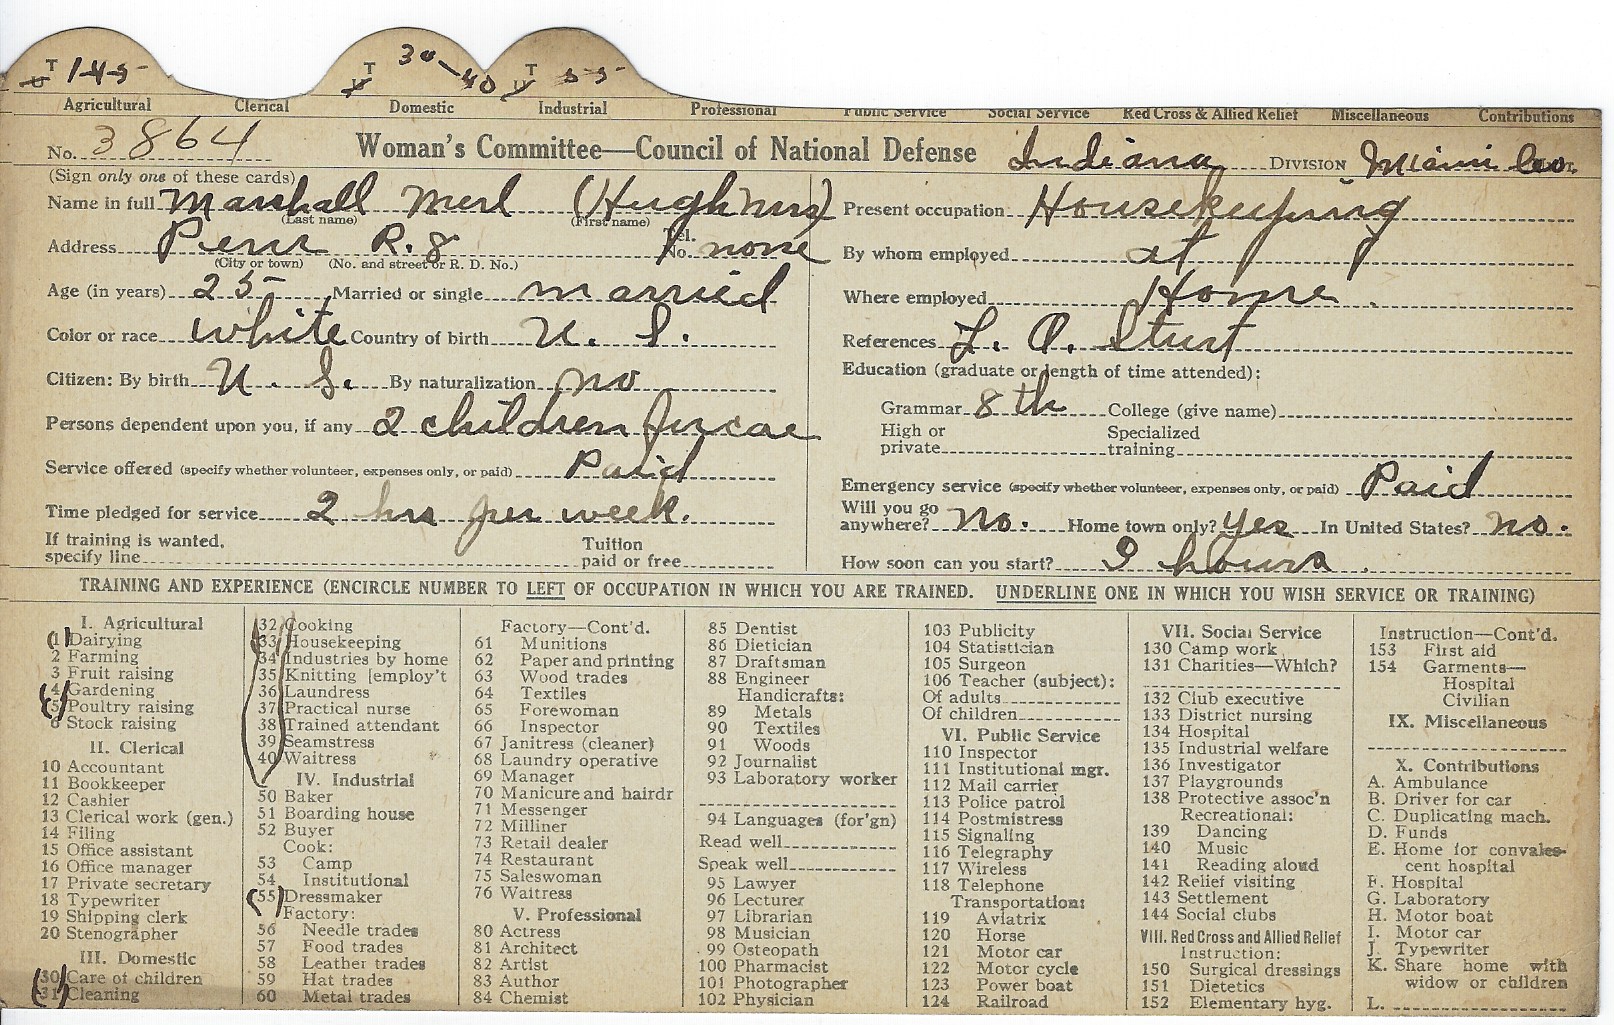 T 1-4-5 T 30-40 T 55
Agricultural Clerical Domestic Industrial Professional Public Service Social Service Red Cross & Allied Relief Miscellaneous Contributions
No. 3864 Woman's Committee—Council of National Defense Indiana DIVISION Miami Co.
(Sign only one of these cards)
Name in full Marshall Merl (Hugh Mrs)
(Last name) (First name)
Address Peru R. 8 Tel. No. none
(City or town) (No. and street or R. D. No.)
Age (in years) 25 Married or single married
Color or race white Country of birth U. S.
Citizen: By birth U. S. By naturalization no
Persons dependent upon you, if any 2 children for care
Service offered (specify whether volunteer, expenses only, or paid) Paid
Time pledged for service 2 hrs per week.
If training is wanted, specify line Tuition paid or free
Present occupation Housekeeping
By whom employed at
Where employed Home.
References L. O. Sturt
Education (graduate or length of time attended):
Grammar 8th College (give name)
High or private Specialized training
Emergency service (specify whether volunteer, expenses only, or paid) Paid
Will you go anywhere? No. Home town only? yes In United States? no.
How soon can you start? 9 hours.
TRAINING AND EXPERIENCE (ENCIRCLE NUMBER TO LEFT OF OCCUPATION IN WHICH YOU ARE TRAINED. UNDERLINE ONE IN WHICH YOU WISH SERVICE OR TRAINING)
I. Agricultural
1 Dairying
2 Farming
3 Fruit raising
4 Gardening
5 Poultry raising
6 Stock raising
II. Clerical
10 Accountant
11 Bookkeeper
12 Cashier
13 Clerical work (gen.)
14 Filing
15 Office assistant
16 Office manager
17 Private secretary
18 Typewriter
19 Shipping clerk
20 Stenographer
III. Domestic
30 Care of children
31 Cleaning
32 Cooking
33 Housekeeping
34 Industries by home
35 Knitting [employ't
36 Laundress
37 Practical nurse
38 Trained attendant
39 Seamstress
40 Waitress
IV. Industrial
50 Baker
51 Boarding house
52 Buyer
Cook:
53 Camp
54 Institutional
55 Dressmaker
Factory:
56 Needle trades
57 Food trades
58 Leather trades
59 Hat trades
60 Metal trades
Factory—Cont'd.
61 Munitions
62 Paper and printing
63 Wood trades
64 Textiles
65 Forewoman
66 Inspector
67 Janitress (cleaner)
68 Laundry operative
69 Manager
70 Manicure and hairdr
71 Messenger
72 Milliner
73 Retail dealer
74 Restaurant
75 Saleswoman
76 Waitress
V. Professional
80 Actress
81 Architect
82 Artist
83 Author
84 Chemist
85 Dentist
86 Dietician
87 Draftsman
88 Engineer
Handicrafts:
89 Metals
90 Textiles
91 Woods
92 Journalist
93 Laboratory worker
94 Languages (for'gn)
Read well
Speak well
95 Lawyer
96 Lecturer
97 Librarian
98 Musician
99 Osteopath
100 Pharmacist
101 Photographer
102 Physician
103 Publicity
104 Statistician
105 Surgeon
106 Teacher (subject):
Of adults
Of children
VI. Public Service
110 Inspector
111 Institutional mgr.
112 Mail carrier
113 Police patrol
114 Postmistress
115 Signaling
116 Telegraphy
117 Wireless
118 Telephone
Transportation:
119 Aviatrix
120 Horse
121 Motor car
122 Motor cycle
123 Power boat
124 Railroad
VII. Social Service
130 Camp work
131 Charities—Which?
132 Club executive
133 District nursing
134 Hospital
135 Industrial welfare
136 Investigator
137 Playgrounds
138 Protective assoc'n
Recreational:
139 Dancing
140 Music
141 Reading aloud
142 Relief visiting
143 Settlement
144 Social clubs
VIII. Red Cross and Allied Relief
Instruction:
150 Surgical dressings
151 Dietetics
152 Elementary hyg.
Instruction—Cont'd.
153 First aid
154 Garments—
Hospital
Civilian
IX. Miscellaneous
X. Contributions
A. Ambulance
B. Driver for car
C. Duplicating mach.
D. Funds
E. Home for convales-
cent hospital
F. Hospital
G. Laboratory
H. Motor boat
I. Motor car
J. Typewriter
K. Share home with
widow or children
L.